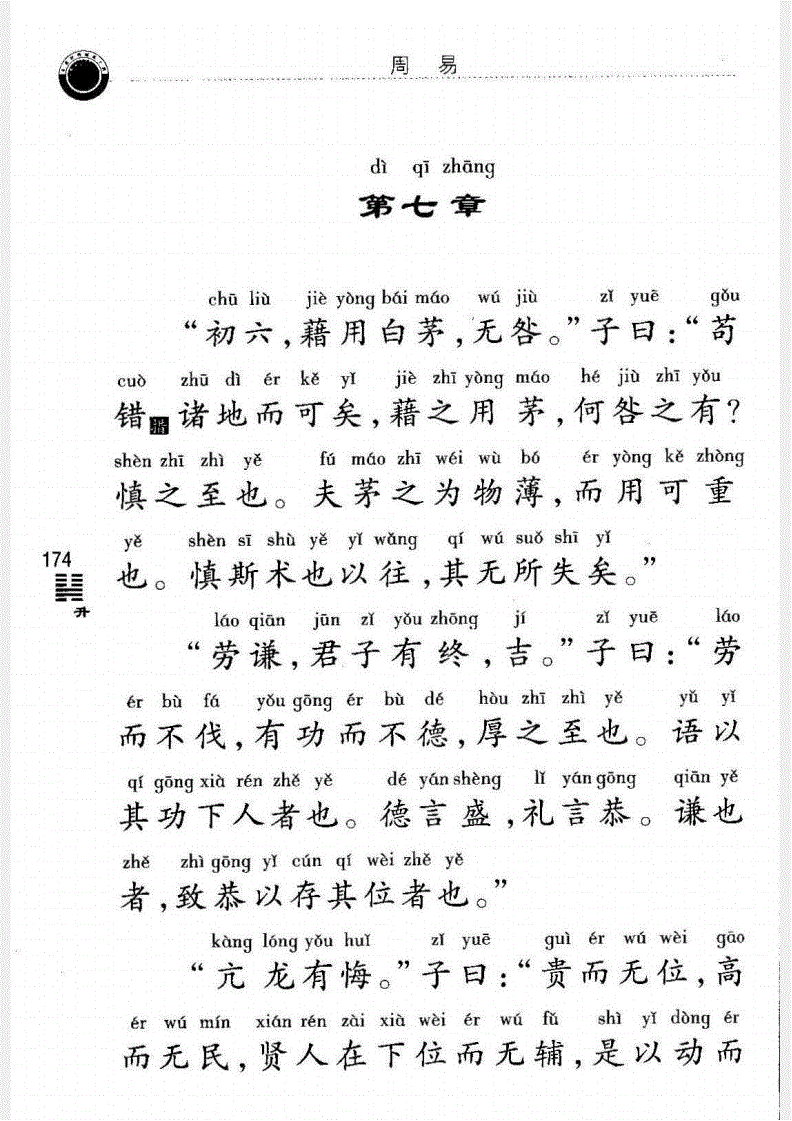 周 易
dì qī zhāng
第七章
chū liù jiè yòng bái máo wú jiù zǐ yuē gǒu
“初六，藉用白茅，无咎。”子曰：“苟
cuò zhū dì ér kě yǐ jiè zhī yòng máo hé jiù zhī yǒu
错措诸地而可矣，藉之用茅，何咎之有？
shèn zhī zhì yě fú máo zhī wéi wù bó ér yòng kě zhòng
慎之至也。夫茅之为物薄，而用可重
yě shèn sī shù yě yǐ wǎng qí wú suǒ shī yǐ
也。慎斯术也以往，其无所失矣。”
174
升
láo qiān jūn zǐ yǒu zhōng jí zǐ yuē láo
“劳谦，君子有终，吉。”子曰：“劳
ér bù fá yǒu gōng ér bù dé hòu zhī zhì yě yǔ yǐ
而不伐，有功而不德，厚之至也。语以
qí gōng xià rén zhě yě dé yán shèng lǐ yán gōng qiān yě
其功下人者也。德言盛，礼言恭。谦也
zhě zhì gōng yǐ cún qí wèi zhě yě
者，致恭以存其位者也。”
kàng lóng yǒu huǐ zǐ yuē guì ér wú wèi gāo
“亢龙有悔。”子曰：“贵而无位，高
ér wú mín xián rén zài xià wèi ér wú fǔ shì yǐ dòng ér
而无民，贤人在下位而无辅，是以动而